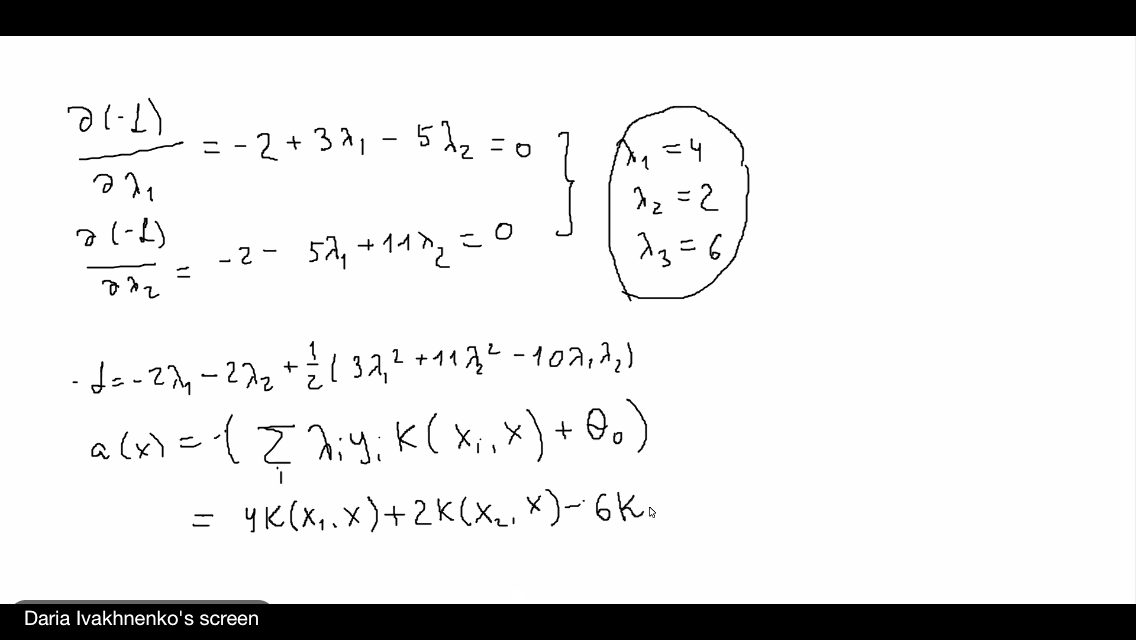 ∂(-L)/∂λ₁ = -2 + 3λ₁ - 5λ₂ = 0
∂(-L)/∂λ₂ = -2 - 5λ₁ + 11λ₂ = 0
λ₁ = 4
λ₂ = 2
λ₃ = 6
-L = -2λ₁ - 2λ₂ + 1/2 (3λ₁² + 11λ₂² - 10λ₁λ₂)
a(x) = -(∑ᵢ λᵢyᵢ K(xᵢ, x) + θ₀)
= 4K(x₁, x) + 2K(x₂, x) - 6K
Daria Ivakhnenko's screen